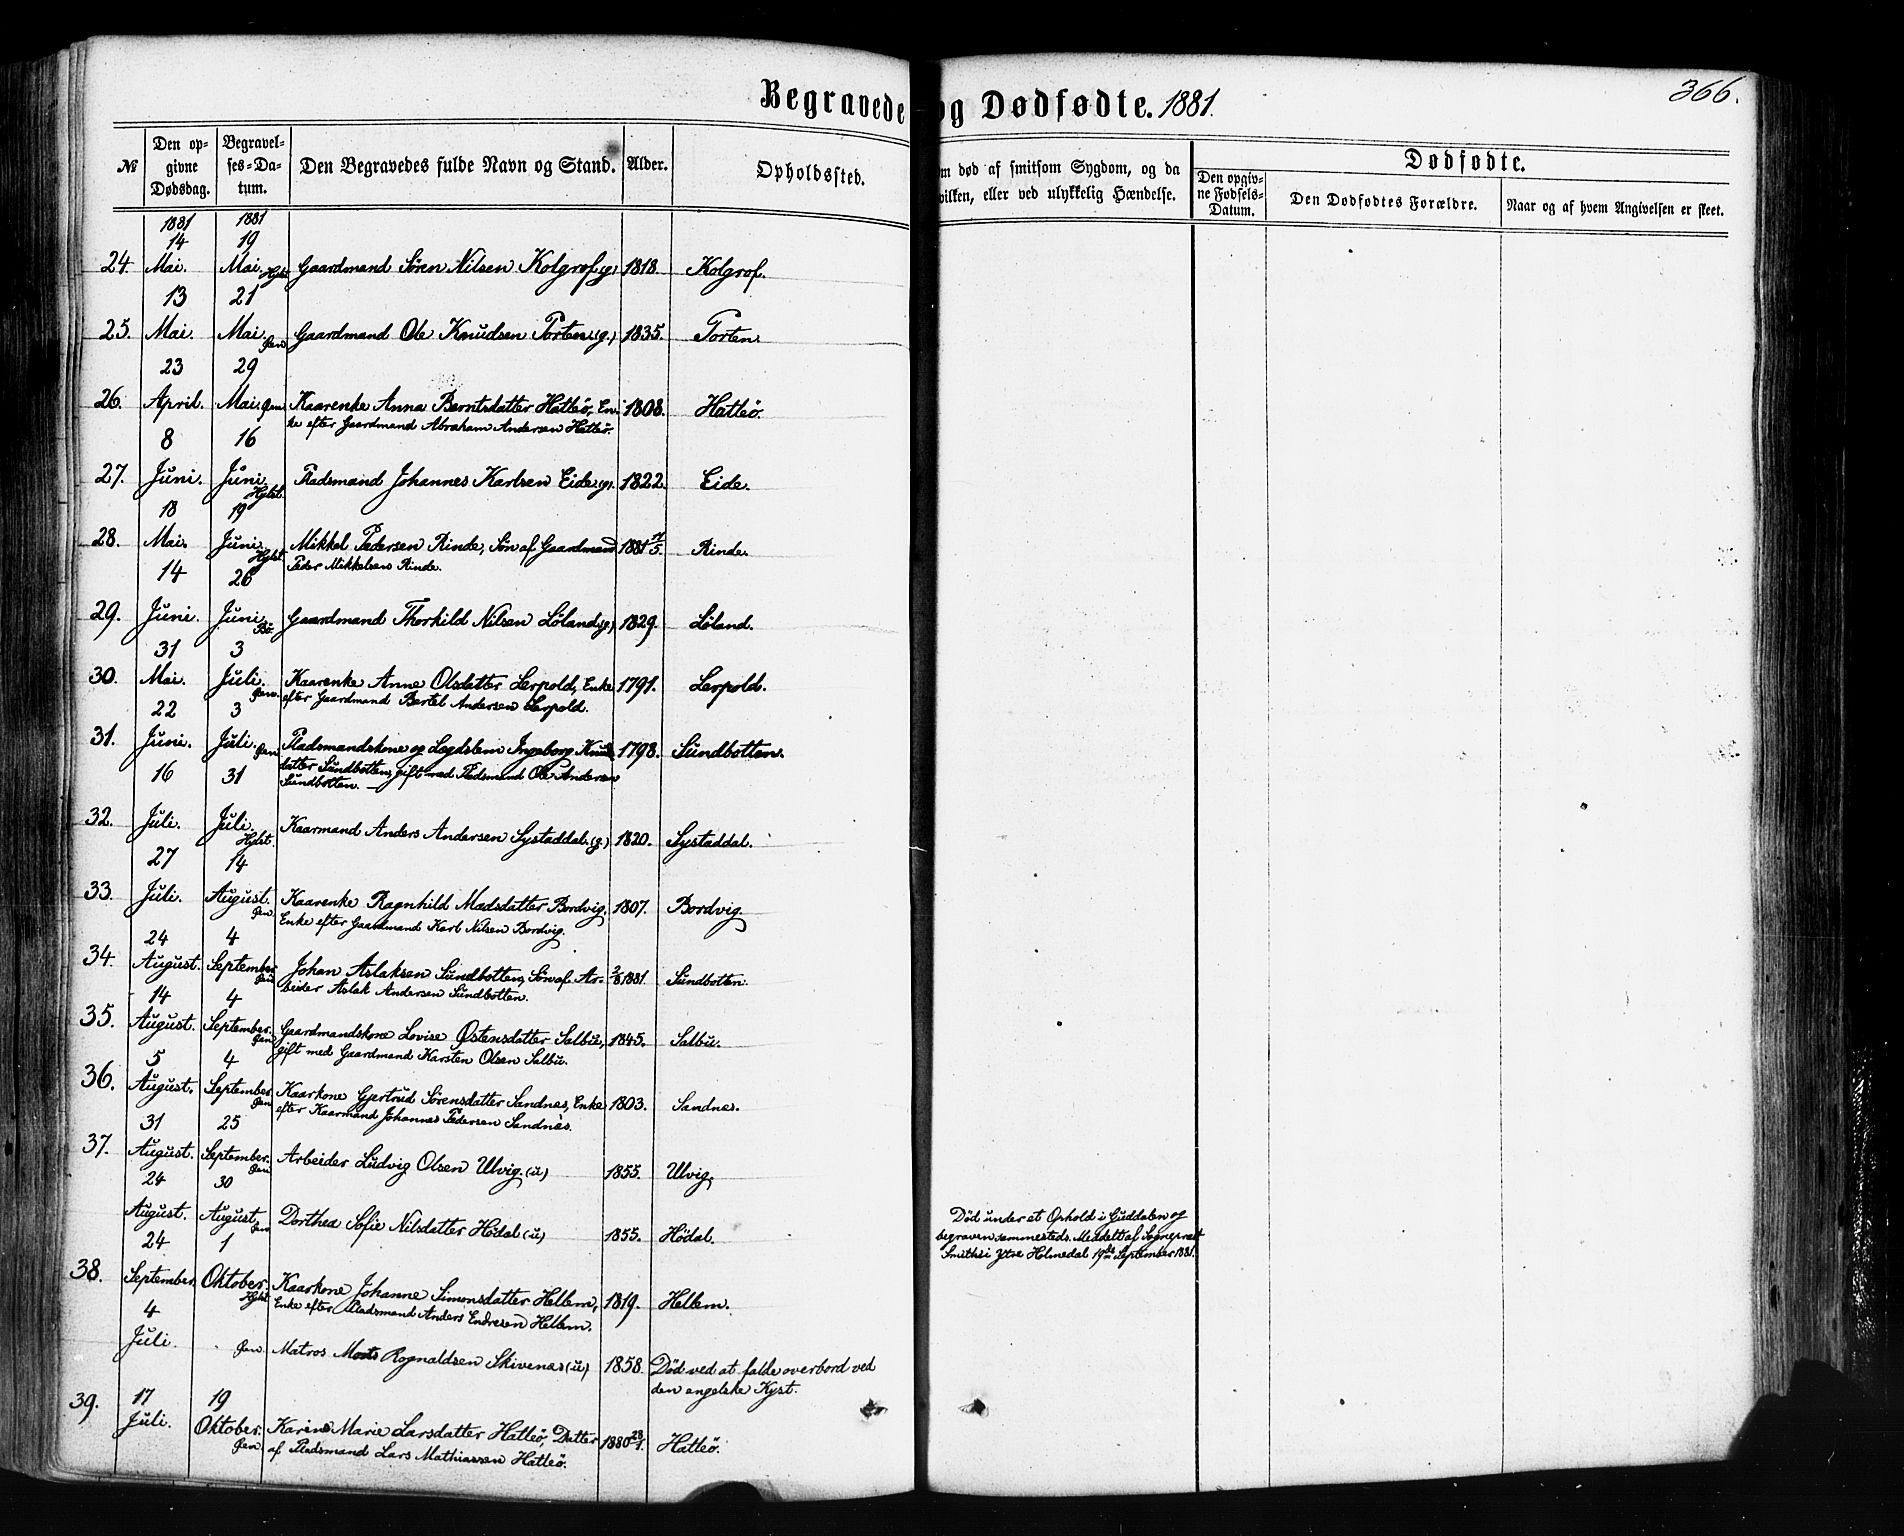 366.
Begravede og Dødfødte. 1881.
№
Den op-
givne
Dødsdag.
Begravel-
ses-Da-
tum.
Den Begravedes fulde Navn og Stand.
Alder.
Opholdssted.
om død af smitsom Sygdom, og da
hvilken, eller ved ulykkelig Hændelse.
Dødfødte.
Den opgiv-
ne Fødsels-
Datum.
Den Dødfødtes Forældre.
Naar og af hvem Angivelsen er skeet.
1881 1881
14 19
24. Mai. Mai. Hylst. Gaardmand Sören Nilsen Kolgrof (g) 1818. Kolgrof.
13 21
25. Mai. Mai. Øen Gaardmand Ole Knudsen Porten (g.) 1835. Porten.
23 29
26. April. Mai. Øen Kaarenke Anna Berntsdatter Hatleö, En- 1808. Hatleö.
ke efter Gaardmand Abraham Andersen Hatleö.
8 16
27. Juni. Juni. Hylst. Pladsmand Johannes Karlsen Eide (g). 1822. Eide.
18 19
28. Mai. Juni. Hylst. Mikkel Pedersen Rinde, Sön af Gaardmand 1881 Rinde.
Peder Mikkelsen Rinde.
14 26
29. Juni. Juni. Bö. Gaardmand Thorkild Nilsen Löland (g.) 1829. Löland.
31 3
30. Mai. Juli. Øen. Kaarenke Anne Olsdatter Lerpold, Enke 1791. Lerpold.
efter Gaardmand Bertel Andersen Lerpold.
22 3
31. Juni. Juli. Øen Pladsmandskone og Lægdslem Ingeborg Knuds- 1798. Sundbotten.
datter Sundbotten, gift med Pladsmand Ole Andersen
Sundbotten.
16 31
32. Juli. Juli. Hylst. Kaarmand Anders Andersen Systaddal. (g.) 1820. Systaddal.
27 14
33. Juli. August. Øen. Kaarenke Ragnhild Madsdatter Bordvig, 1807. Bordvig.
Enke efter Gaardmand Karl Nilsen Bordvig.
24 4
34. August. September. Øen Johan Aslaksen Sundbotten, Sön af Ar- 2/8 1881. Sundbotten.
beider Aslak Andersen Sundbotten.
14 4
35. August. September. Øen Gaardmandskone Lovise Østensdatter Salbu, 1845. Salbu.
gift med Gaardmand Karsten Olsen Salbu.
5 4
36. August. September. Øen Kaarkone Gjertrud Sörensdatter Sandnes, Enke 1803. Sandnes.
efter Kaarmand Johannes Pedersen Sandnes.
31 25
37. August. September. Øen Arbeider Ludvig Olsen Ulvig. (u) 1855. Ulvig.
24 30
August. August. Øen Dorthea Sofie Nilsdatter Hödal (u) 1855. Hödal.
Död under et Ophold i Guddalen og
begraven sammesteds. Meddelt af Sogneprest
Smith i Ytre Holmedal 19de September 1881.
24 1
38. September. Oktober. Hylst Kaarkone Johanne Simonsdatter Hellem, 1819. Hellem.
Enke efter Pladsmand Anders Endresen Hellem.
4
Juli. Øen Matros Rognaldsen Skivenes (u) 1858. Död ved at falde overbord ved
den engelske Kyst.
17 19
39. Juli. Oktober. Øen. Karine Marie Larsdatter Hatleö, Datter 1880 28/1. Hatleö.
af Pladsmand Lars Mathiassen Hatleö.